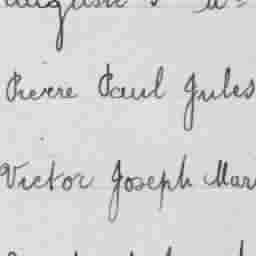 Pierre Paul Jules
Victor Joseph Mar